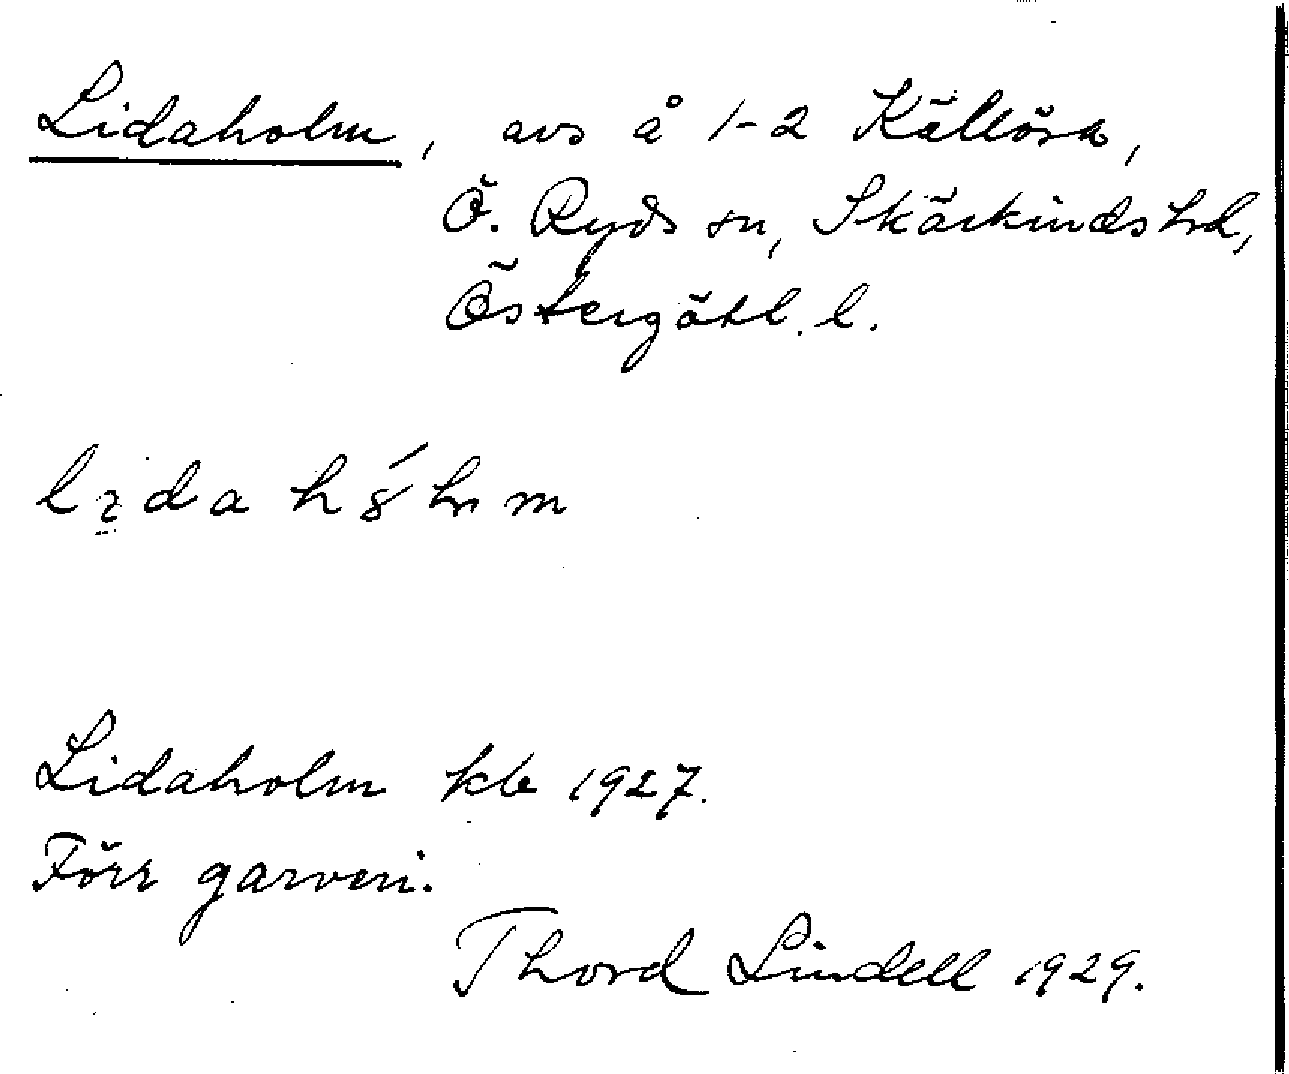 Lidaholm, avs å 1-2 Källösa,
Ö. Ryds sn, Skärkinds hd,
Östergötl. l.
Lidaholm kb 1927.
Förr garveri.
Thord Lindell 1929.